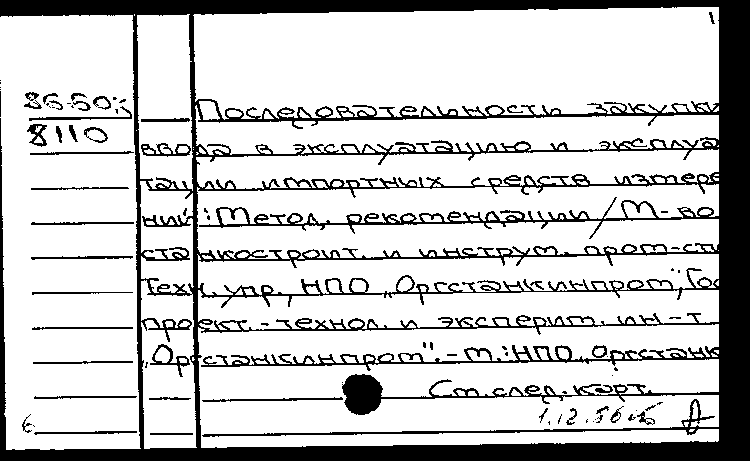 86-50%
8110
Последовательность закупки
ввода в эксплуатацию и эксплуа
тации импортных средств измере
ний: Метод. рекомендации / М-во
станкостроит. и инструм. пром-сти
Техн. упр., НПО „Оргстанкинпром", Гос
проект.-технол. и эксперим. ин-т
„Оргстанкинпром".-М.: НПО „Оргстанк
См. след. карт.
6